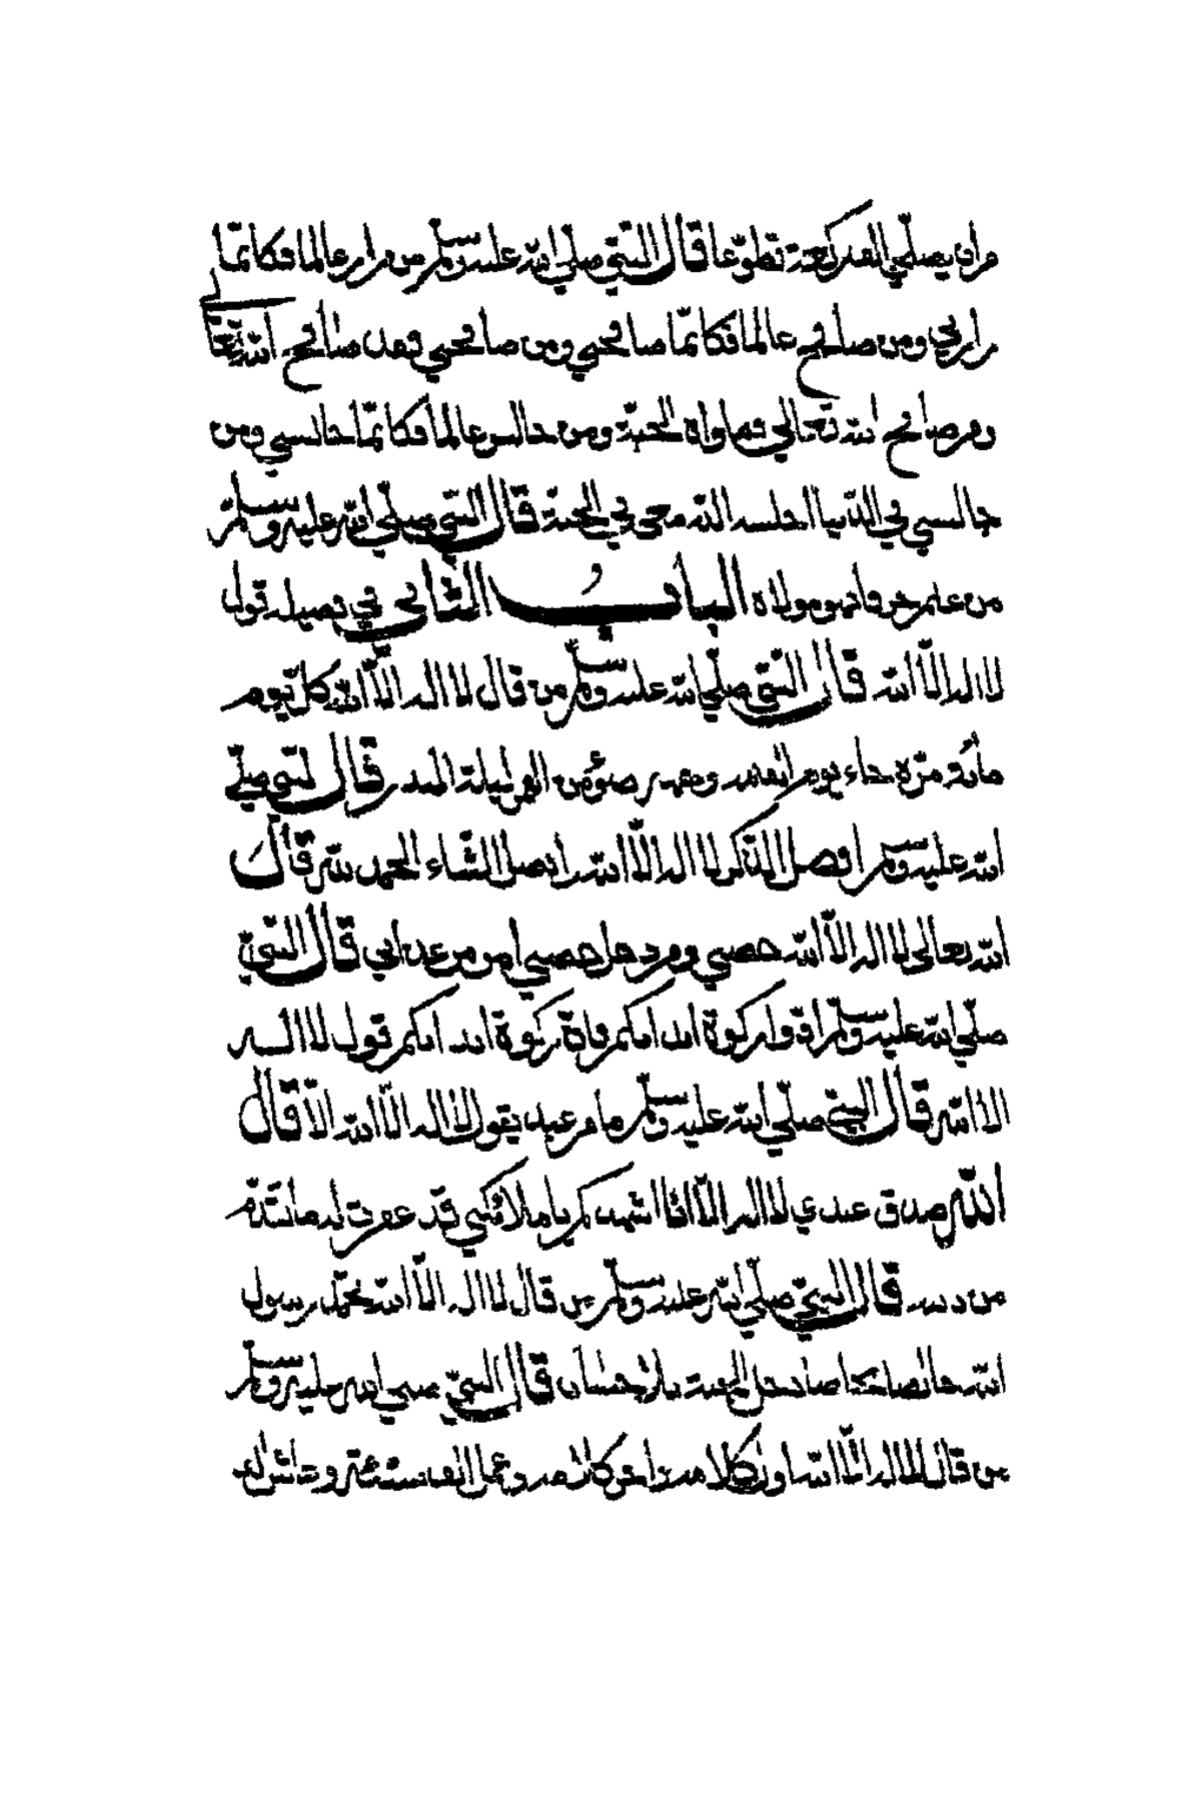 من ان يصلي الف ركعة تطوعا قال النبي صلي الله عليه وسلم من زار عالما فكانما
زارني ومن صافح عالما فكانما صافحني ومن صافحني فقد صافح الله تعالى
ومن صافح الله تعالي فماواه الجنة ومن جالس عالما فكانما جالسني ومن
جالسني في الدنيا اجلسه الله معي في الجنة قال النبي صلي الله عليه وسلم
من علم حرفا فهو مولاه الباب الثاني في فضيلة قول
لا اله الا الله قال النبي صلي الله عليه وسلم من قال لا اله الا الله كل يوم
مائة مرة جاء يوم القيمة ووجهه ضوؤه من القمر ليلة البدر قال النبي صلي
الله عليه وسلم افضل الذكر لا اله الا الله وافضل الثناء الحمد لله قال
الله تعالى لا اله الا الله حصني ومن دخل حصني امن من عذابي قال النبي
صلي الله عليه وسلم ادوا زكوة ابدانكم فان زكوة ابدانكم قول لا اله
الا الله قال النبي صلي الله عليه وسلم ما من عبد يقول لا اله الا الله الا قال
الله صدق عبدي لا اله الا انا اشهدكم يا ملائكتي قد غفرت له ما تقدم
من ذنبه قال النبي صلي الله عليه وسلم من قال لا اله الا الله محمد رسول
الله خالصا مخلصا دخل الجنة بلا حساب قال النبي صلي الله عليه وسلم
من قال لا اله الا الله اول كلامه واخر كلامه وعمل الف سيئة وعاش الف